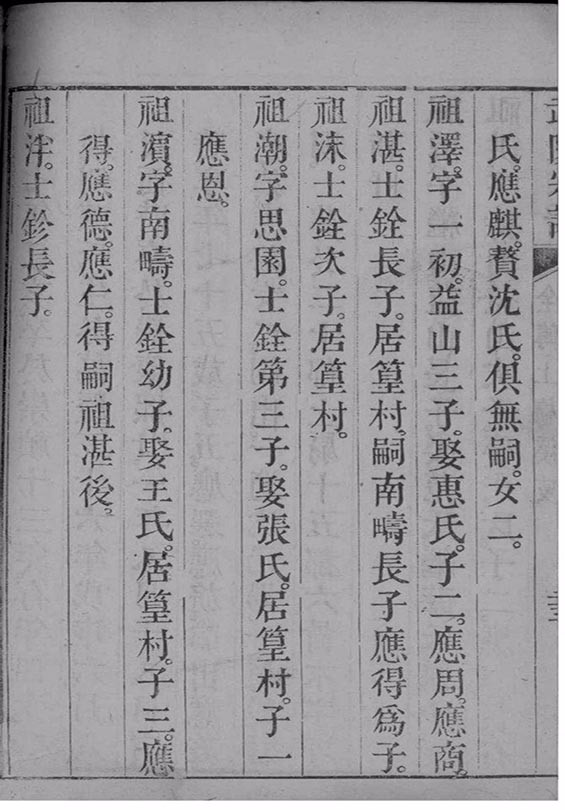 氏。應麒。贅沈氏。俱無嗣。女二。
祖澤。字一初。益山三子。娶惠氏。子二。應周。應商。
祖湛。士銓長子。居篁村。嗣南疇長子應得爲子。
祖沬。士銓次子。居篁村。
祖潮。字思園。士銓第三子。娶張氏。居篁村。子一
應恩。
祖濱。字南疇。士銓幼子。娶王氏。居篁村。子三。應
得。應德。應仁。得嗣祖湛後。
祖泮。士鉁長子。